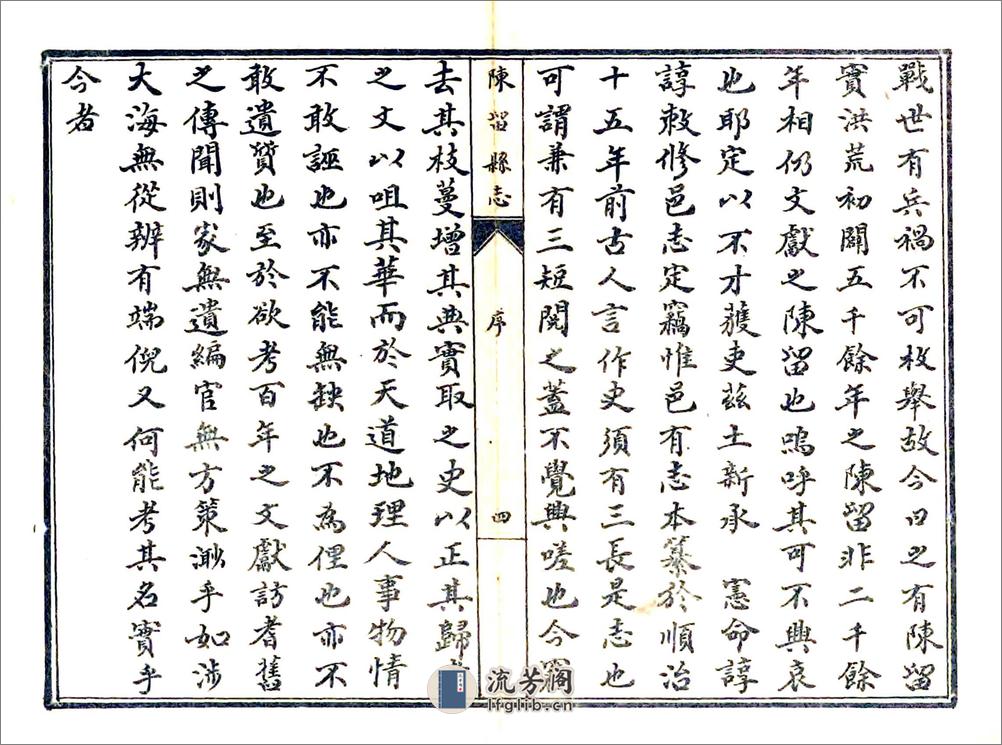 戰世有兵禍不可枚舉故今日之有陳留
實洪荒初闢五千餘年之陳留非二千餘
年相仍文獻之陳留也嗚呼其可不興哀
也耶定以不才蒦吏茲土新承 憲命諄
諄敕修邑志定竊惟邑有志本纂於順治
十五年前古人言作史須有三長是志也
可謂兼有三短閱之蓋不覺興嗟也今
陳留縣志
序
四
去其枝蔓增其典實取之史以正其歸
之文以咀其華而於天道地理人事物情
不敢誣也亦不能無缺也不為俚也亦不
敢遺贊也至於欲考百年之文獻訪耆舊
之傳聞則家無遺編官無方策渺乎如涉
大海無從辨有端倪又何能考其名實乎
今者
流芳閣
lfglib.cn